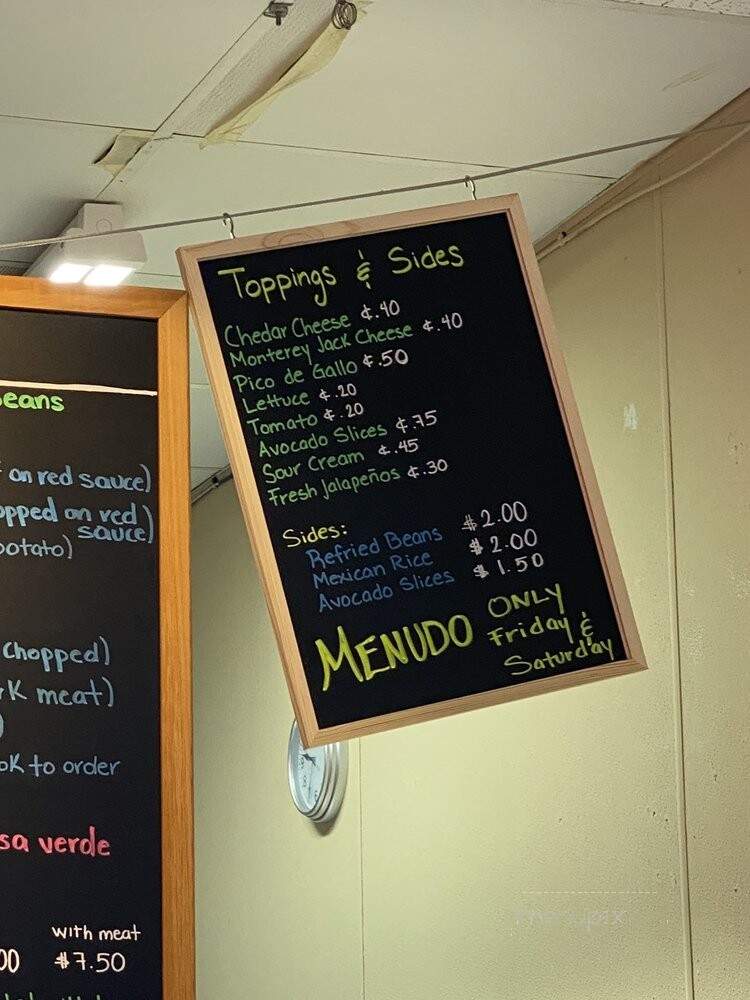 Toppings & Sides
Chedar Cheese ¢.40
Monterey Jack Cheese ¢.40
Pico de Gallo ¢.50
Lettuce ¢.20
Tomato ¢.20
Avocado Slices ¢.75
Sour Cream ¢.45
Fresh Jalapeños ¢.30
Sides:
Refried Beans $2.00
Mexican Rice $2.00
Avocado Slices $1.50
MENUDO ONLY
Friday &
Saturday
eans
on red sauce)
opped on red
sauce)
potato)
chopped)
rk meat)
ok to order
sa verde
with meat
00 $7.50
menupix